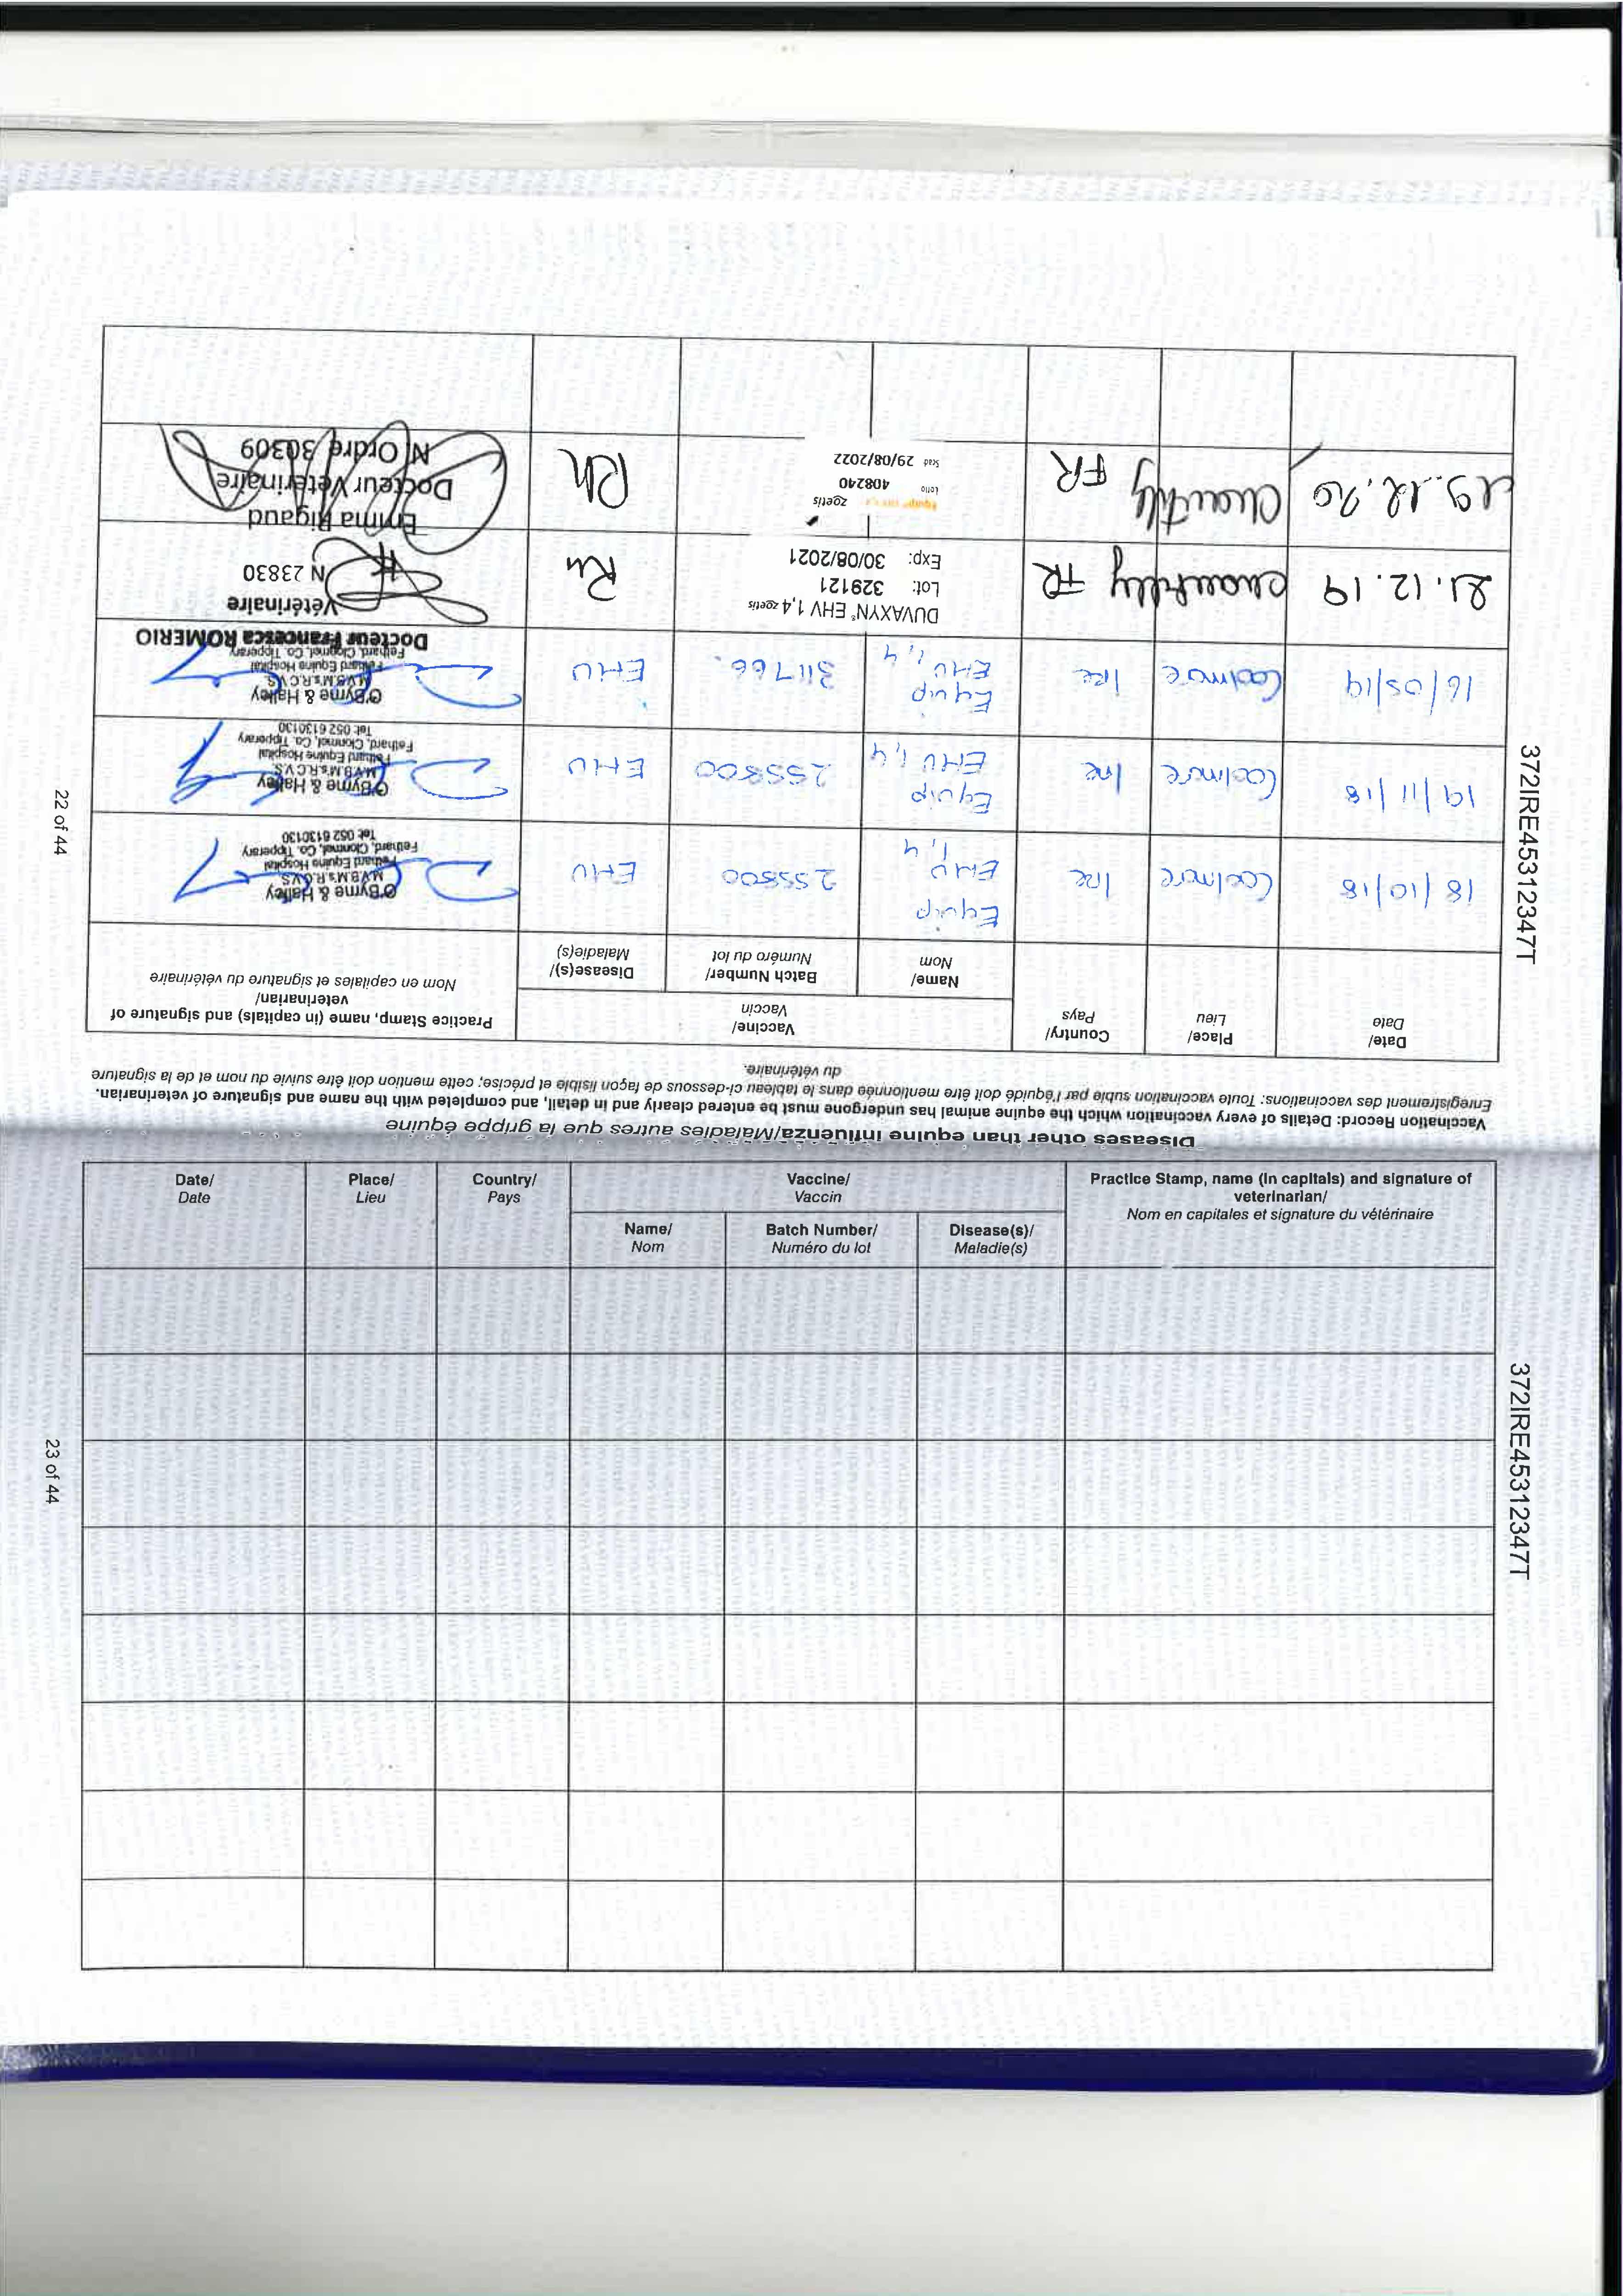 Diseases other than equine influenza/Maladies autres que la grippe équine
Vaccination Record: Details of every vaccination which the equine animal has undergone must be entered clearly and in detail, and completed with the name and signature of veterinarian.
Enregistrement des vaccinations: Toute vaccination subie par l'équidé doit être mentionnée dans le tableau ci-dessous de façon lisible et précise; cette mention doit être suivie du nom et de la signature
du vétérinaire.
Date/
Date
Place/
Lieu
Country/
Pays
Vaccine/
Vaccin
Name/
Nom
Batch Number/
Numéro du lot
Diseases(s)/
Maladie(s)
Practice Stamp, name (in capitals) and signature of
veterinarian/
Nom en capitales et signature du vétérinaire
18/10/18
Coolmore
Ire
Equip
EHV
1,4
255800
EHV
O'Byrne & Halley
M.V.B M's R.C.V.S
Fethard Equine Hospital
Fethard, Clonmel, Co. Tipperary
Tel: 052 6130130
19/11/18
Coolmore
Ire
Equip
EHV 1,4
255800
EHV
O'Byrne & Halley
M.V.B M's R.C.V.S
Fethard Equine Hospital
Fethard, Clonmel, Co. Tipperary
Tel: 052 6130130
16/05/19
Coolmore
Ire
Equip
EHV 1,4
311766
EHV
O'Byrne & Halley
M.V.B M's R.C.V.S
Fethard Equine Hospital
Fethard, Clonmel, Co. Tipperary
21.12.19
Chantilly
FR
DUVAXYN® EHV 1,4 zoetis
Lot: 329121
Exp: 30/08/2021
Rh
Docteur Francesca ROMERIO
Vétérinaire
N 23830
19.12.20
Chantilly
FR
zoetis
Lotto 408240
Scad 29/08/2022
Rh
Emma Rigaud
Docteur Vétérinaire
N. Ordre 30309
372IRE45312347T
22 of 44
Date/
Date
Place/
Lieu
Country/
Pays
Vaccine/
Vaccin
Name/
Nom
Batch Number/
Numéro du lot
Disease(s)/
Maladie(s)
Practice Stamp, name (in capitals) and signature of
veterinarian/
Nom en capitales et signature du vétérinaire
372IRE45312347T
23 of 44